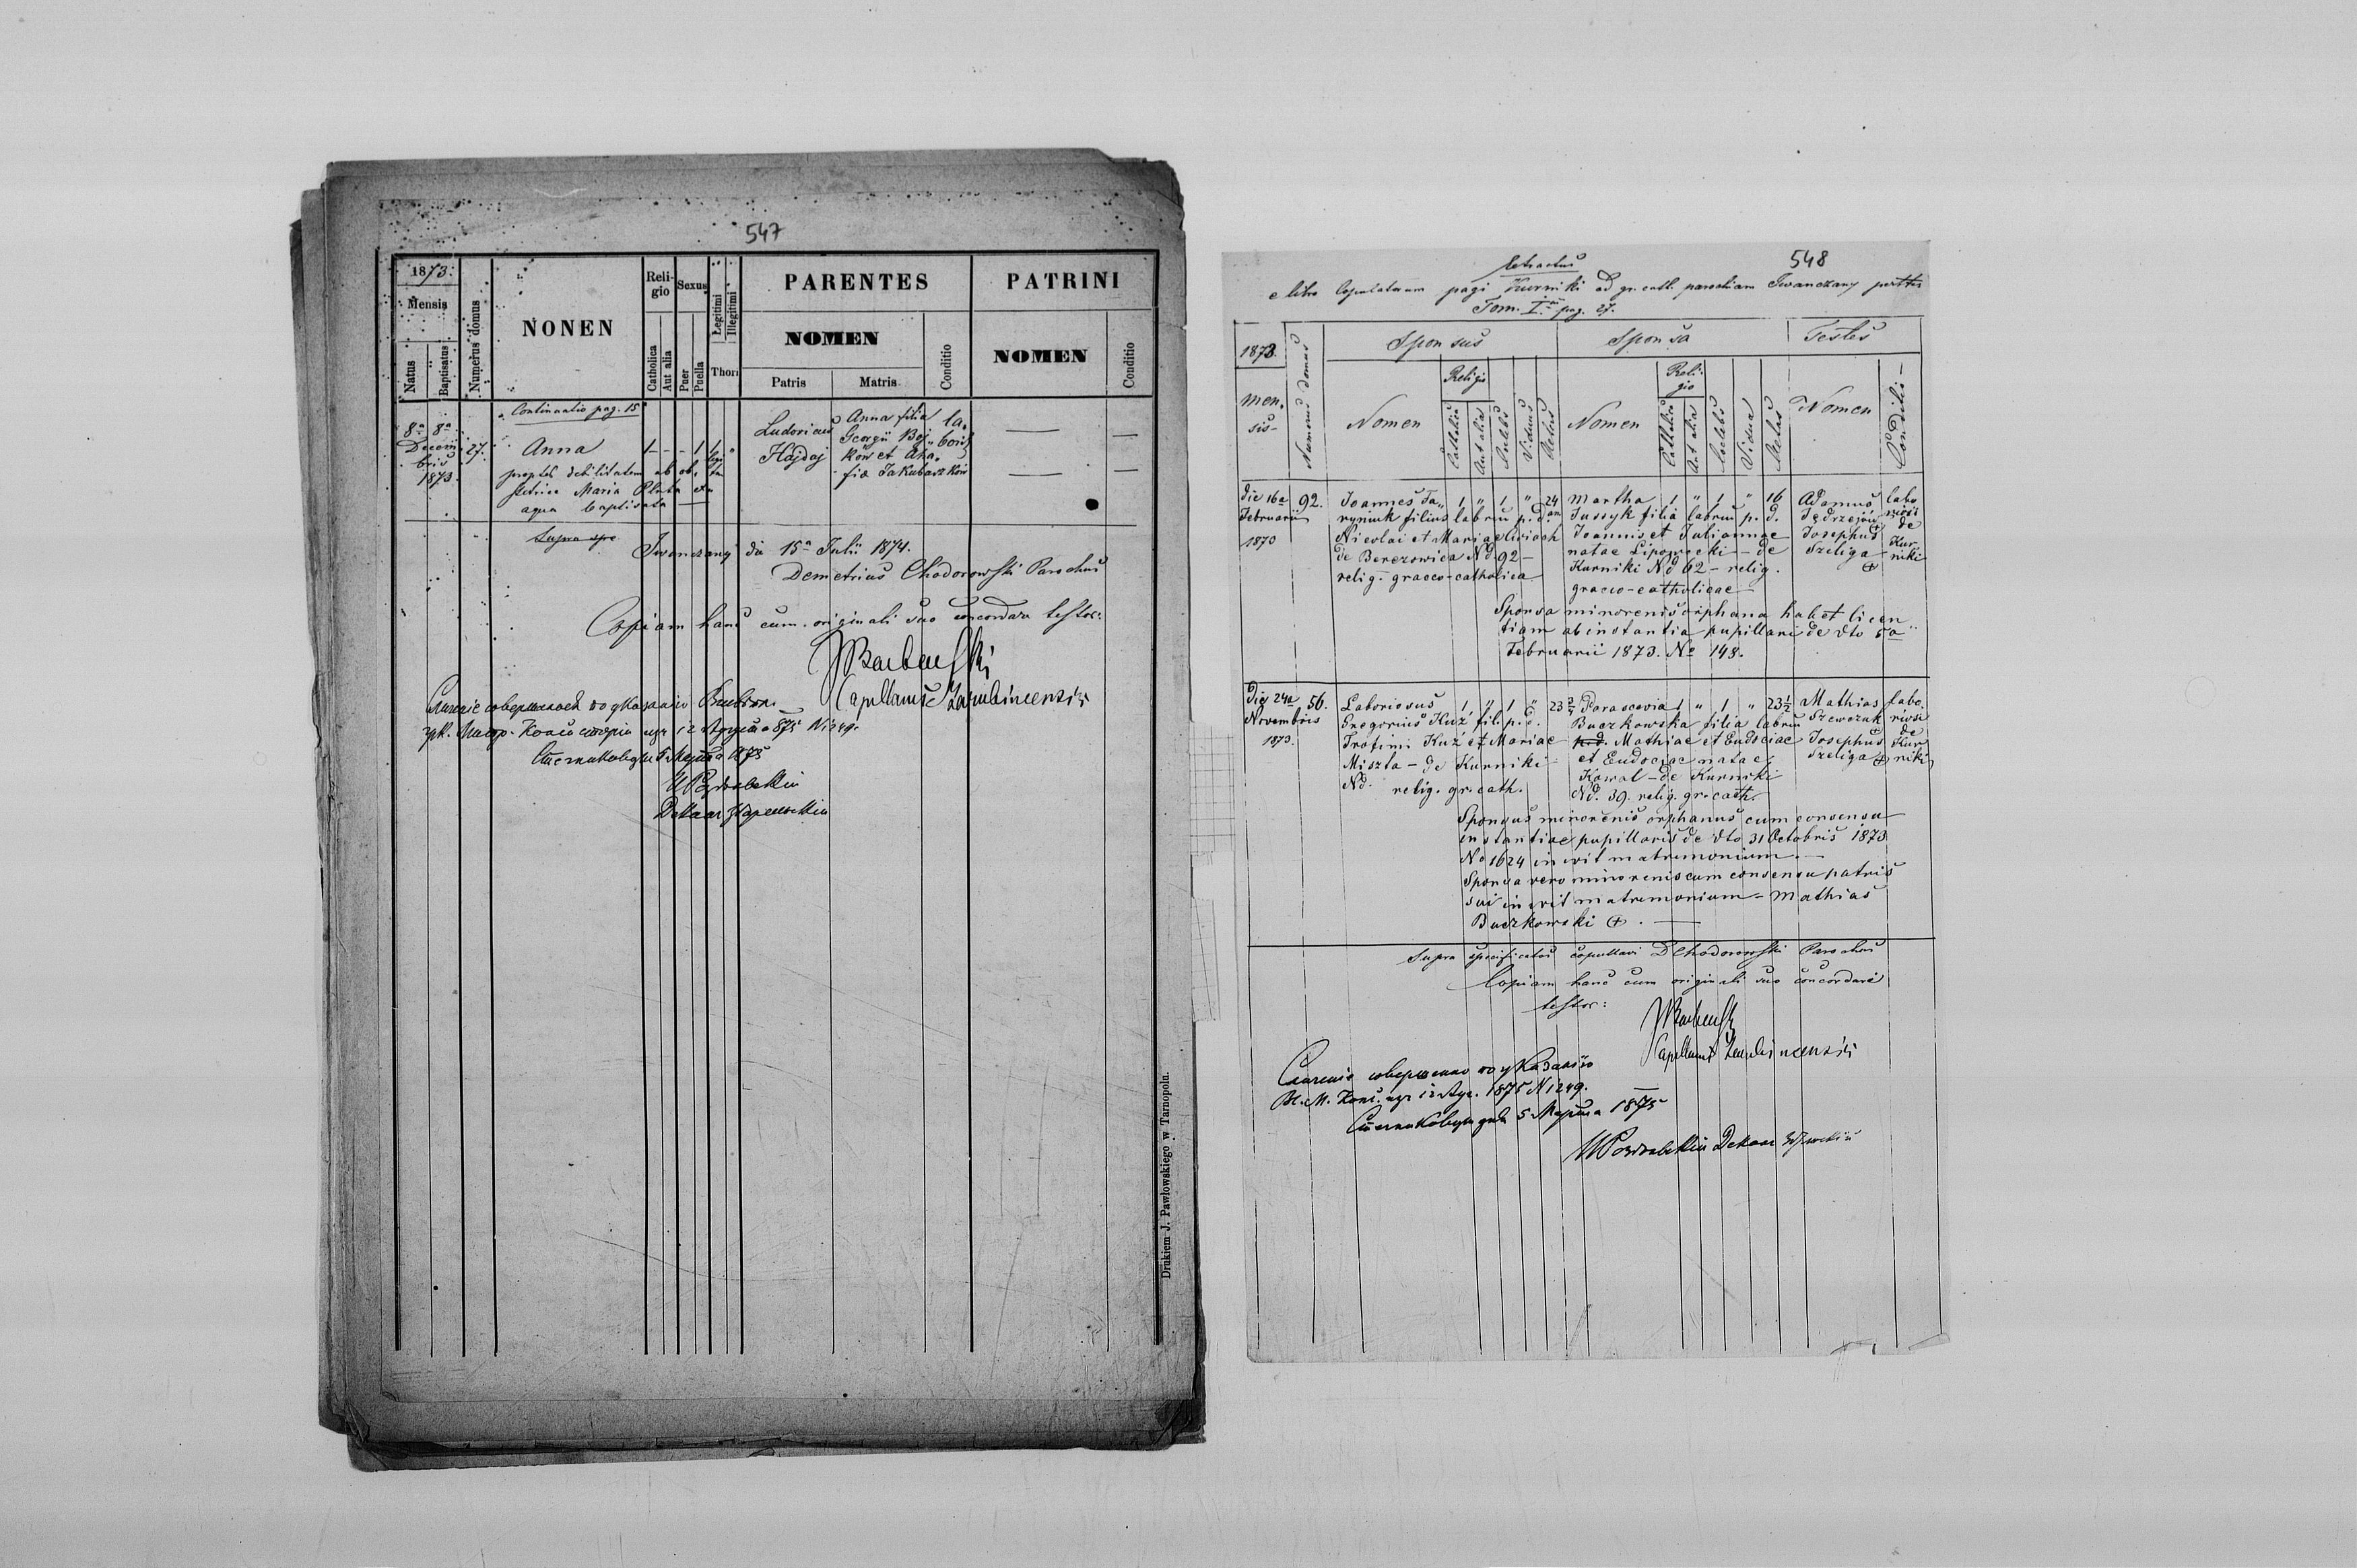 547
1873.
Mensis
Natus
Baptisatus
Numerus domus
NONEN
Reli-
gio
Catholica
Aut alia
Sexus
Puer
Puella
Legitimi
Illegitimi
Thori
PARENTES
NOMEN
Patris
Matris
Conditio
PATRINI
NOMEN
Conditio
Continuatio pag. 15
8a 8a
Decem
bris
1873.
27.
Anna
propter debilitatem ab ob-
stetrice Maria Pluta
aqua baptisata
1 - - - 1
Ludovicus
Hajdaj
Anna filia
Georgii Boj-
ków et Aha-
fia Jakubasz ków
la-
boris
Supra spe
Iwanczany die 15a Julii 1874.
Demetrius Chodorowski Parochus
Copiam hanc cum originali suo concordare testor:
Capellanus Zarubincensis
1875 N 1249.
5 Марта 1875
Декан
Drukiem J. Pawłowskiego w Tarnopolu.
548
Extractus
e libro Copulatorum pagi Kurniki ad gr. cath. parochiam Iwanczany
Tom. I. pag. 27.
1873.
Men-
sis
Numerus domus
Sponsus
Nomen
Religio
Catholica
Aut alia
Coelebs
Viduus
Aetas
Sponsa
Nomen
Reli-
gio
Catholica
Aut alia
Coelebs
Vidua
Aetas
Testes
Nomen
Conditio
die 16a
Februarii
1873
92.
Joannes Ta-
rymuk filius labriu p. d.
Nicolai et Maria
de Berezowica Nd 92 -
relig. graeco-catholica
1 " 1 " 24
Martha 1 " 1 " 16
Jussyk filia labriu p. d.
Joannis et Julianna
natae Lipowecki - de
Kurniki Nd 62 - relig.
graeco-catholicae
Adamus
Jędrzejów
Josephus
Szeliga
labo
riosis
de
Kur-
niki
Sponsa minorenis orphana habet licen
tiam ab instantia pupillari de dto 5a
Februarii 1873. No 148.
Die 24a
Novembris
1873.
56.
Laboriosus 1 " 1 " 23 3/4
Gregorius Kuź fil. p. d.
Trofimi Kuź et Mariae
Miszta - de Kurniki
Nd. relig. gr. cath.
Parascevia 1 " 1 " 23 1/2
Buczkowska filia labriu
p. d. Mathiae et Eudociae
et Eudociae natae
Kowal - de Kurniki
Nd. 39. relig. gr. cath.
Mathias
Szewczuk
Josephus
Szeliga
labo-
riosi
de
Kur
niki
Sponsus minorenis orphanus cum consensu
instantiae pupillaris de dto 31 Octobris 1873
No 1624 inivit matrimonium. -
Sponsa vero minorenis cum consensu patris
sui inivit matrimonium - Mathias
Buczkowski
Supra specificatos copulavi DChodorowski Parochus
Copiam hanc cum originali suo concordare
testor:
Capellanus Zarubincensis
1875 N 1249.
5 Марта 1875
Декан